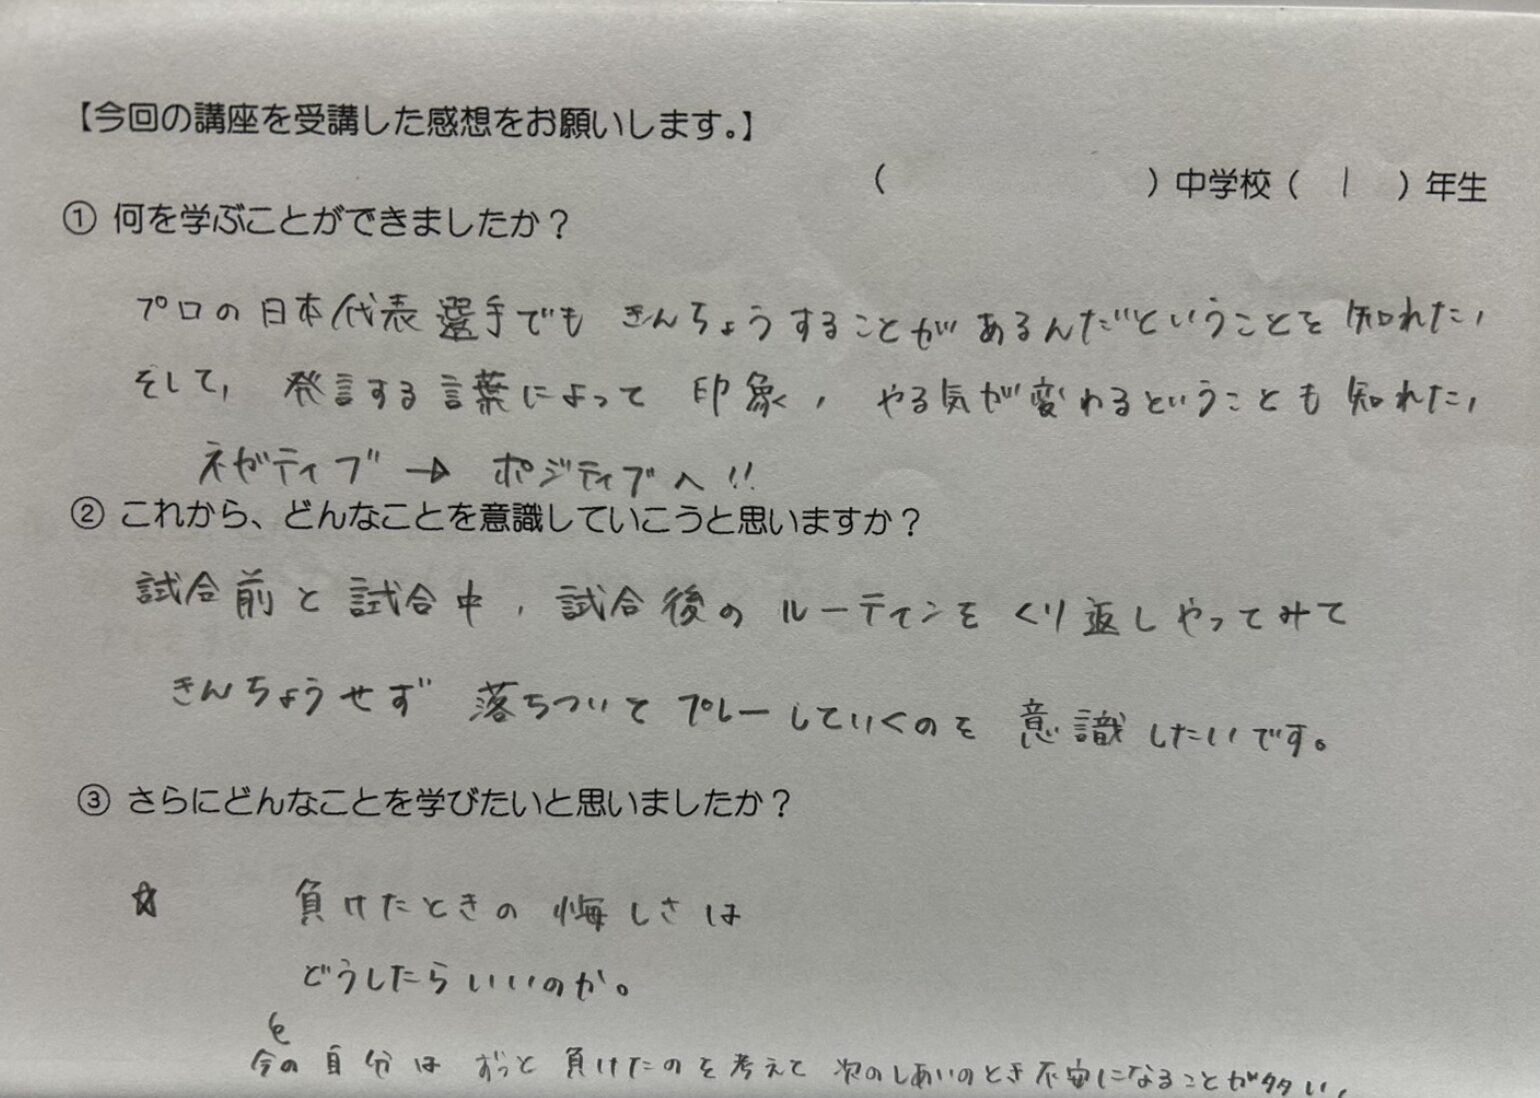 【今回の講座を受講した感想をお願いします。】
（　　　　　　）中学校（　1　）年生
① 何を学ぶことができましたか？
プロの日本代表選手でも きんちょうすることが あるんだということを 知れた,
そして, 発言する言葉によって 印象, やる気が変わるということも 知れた,
ネガティブ → ポジティブへ!!
② これから、どんなことを意識していこうと思いますか？
試合前と試合中, 試合後の ルーティンを くり返しやってみて
きんちょうせず 落ちついて プレーしていくのを 意識したいです。
③ さらにどんなことを学びたいと思いましたか？
☆ 負けたときの 悔しさは
どうしたらいいのか。
今の自分は ずっと 負けたのを考えて 次のしあいのとき不安になることが多い,